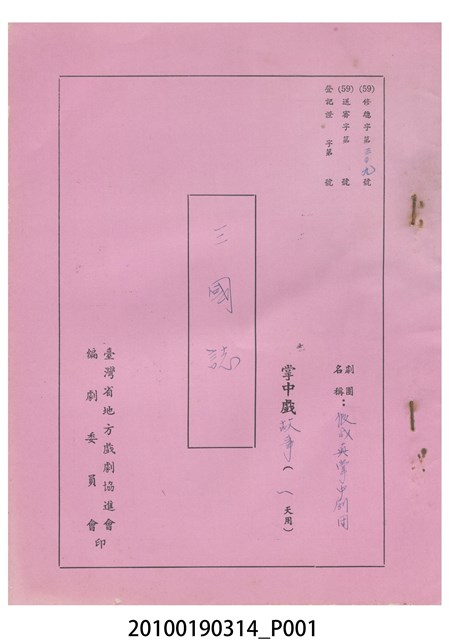 (59)修聽字第 號
(59)送審字第 號
登記證 字第 號
劇團名稱：掌中劇團
掌中戲故事（一天用）
三國誌
臺灣省地方戲劇協進會
編劇委員會印
20100190314_P001